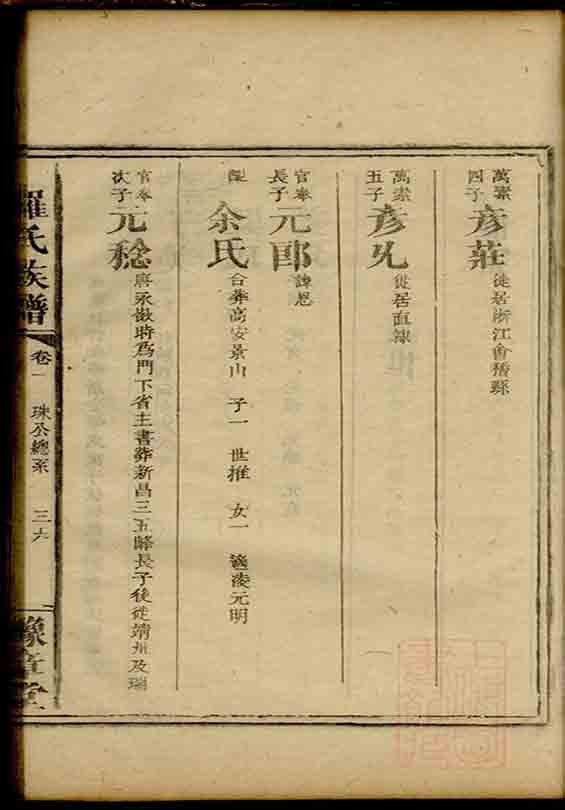 萬素四子 彦莊 徙居浙江會稽縣
萬素五子 彦光 徙居直隷
官奉長子 元郎 諱恩
配 余氏 合葬高安景山 子一 世推 女一 適凌元明
官奉次子 元稔 唐永徽時為門下省主書葬新昌三五峰長子後徙靖州及瑞
羅氏族譜 卷一 珠公總系 三六 豫章堂